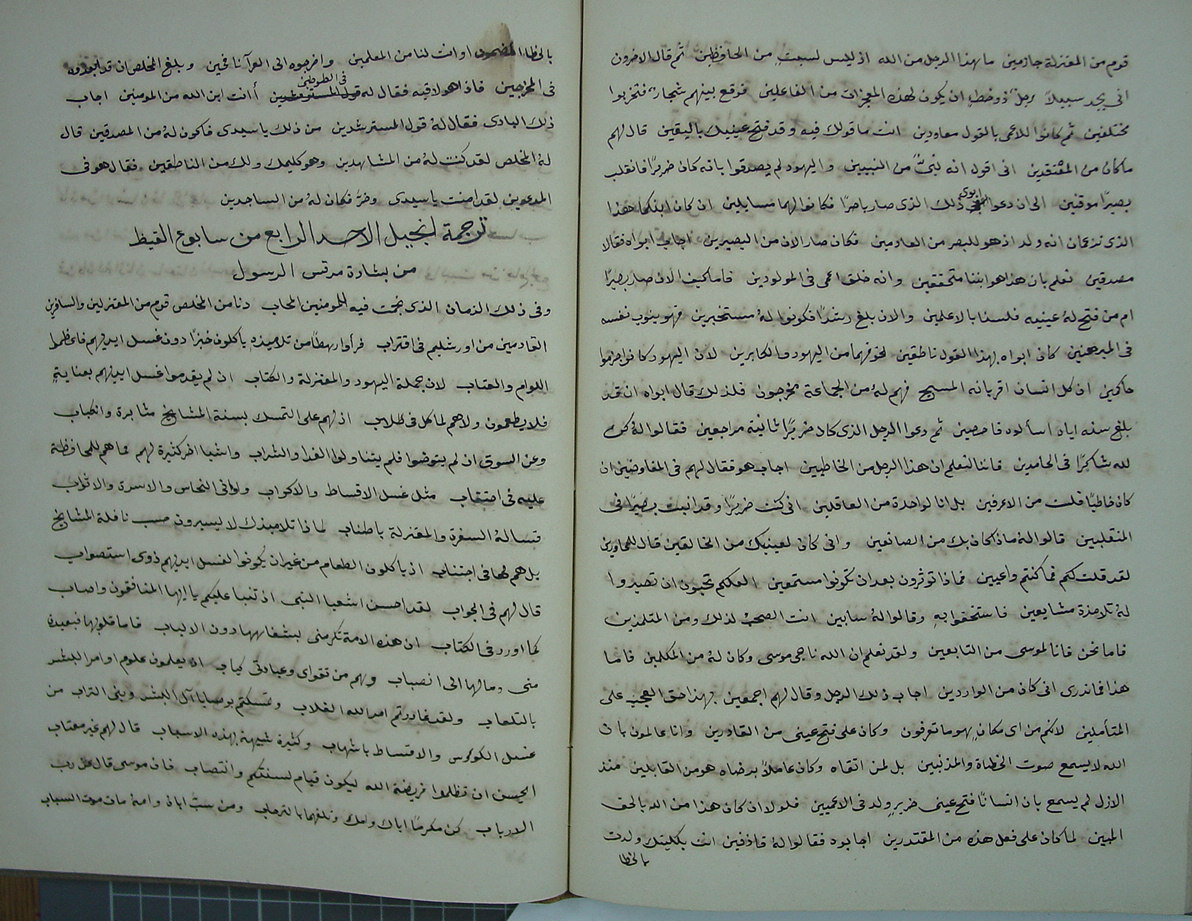 قوم من المعتزلة جازمين ما هذا الرجل من الله اذ ليس لسبت من الحافظين ثم قال الاخرون
انى يجد سبيلاً رجل ذو خطية ان يكون لهذه المعجزات من الفاعلين فوقع بينهم شجار فتحزبوا
مختلفين ثم كانوا للاعمى بالقول معاودين انت ما قولك فيه وقد فتح عينيك باليقين قال لهم
ما كان من المعتقدين انى اقول انه نبىٌّ من النبيين واليهود لم يصدقوا بانه كان ضريرًا فانقلب
بصيرًا موقنين الى ان دعوا ابوى ذلك الذى صار باصرًا فكانوا لهما سايلين ان كان ابنكما هذا
الذى تزعمان انه ولد اذ هو للبصر من العادمين فكان صار الان من البصيرين اجاب ابواه فقالا
مصدقين نعلم بان هذا هو ابننا متحققين وانه خلق اعمى فى المولودين فاما كيف الان صار بصيرًا
ام من فتح له عينيه فلسنا بالاعلمين والان بلغ رشدًا فكونوا له مستخبرين فهو ينوب نفسه
فى المبرهنين كان ابواه بهذا القول ناطقين لخوفهما من اليهود الكابرين لان اليهود كانوا جزموا
حاكمين ان كل انسان اقر بانه المسيح فهم له من الجماعة مخرجون فلذلك قال ابواه ان قد
بلغ سنه اياه اسألوه فاحصين ثم دعوا الرجل الذى كان ضريرًا ثانية مراجعين فقالوا له كن
لله شاكرًا فى الحامدين فاننا لنعلم ان هذا الرجل من الخاطيين اجاب هو فقال لهم فى المفاوضين ان
كان خاطيًا فلت من الاعرفين بل انا لواحدة من العاقلين انى كنت ضريرًا وقد انبت بصيرًا فى
المنقلبين قالوا له ماذا كان بك من الصانعين وانى كان لعينيك من الخالقين قال للمحاورين
لقد قلت لكم فما كنتم واعيين فماذا توثرون بعد ان تكونوا مستمعين العلكم تحبون ان تصيروا
له تلامذة مشايعين فاستخفوا به وقالوا له سابين انت الصحب لذلك ومن المتلمذين
فاما نحن فانا لموسى من التابعين ولقد نعلم ان الله ناجى موسى وكان له من المكلمين فاما
هذا فما ندرى انى كان من الواردين اجاب ذلك الرجل وقال لهم اجمعين بهذا حق العجب على
المتأملين لانكم من اى مكان هو ما تعرفون وكان على فتح عينى من القادرين وانا عالمون بان
الله لا يسمع صوت الخطاة والمذنبين بل لمن اتقاه وكان عاملاً برضاه هو من القابلين منذ
الازل لم يسمع بان انسانًا فتح عينى ضرير ولد فى الاعميين فلولا ان كان هذا من الله بالحق
المبين لما كان على فعل هذه من المقتدرين اجابوه فقالوا له قاذفين انت بكليتك ولدت
بالخطا
بالخطا اوانت لنا من المعلمين واخرجوه الى العرآ نافين وبلغ المخلص ان قد ابعدوه
فى المخرجين فاذا هو لاقيه فى الطريق فقال له قول أانت ابن الله من المومنين اجاب
ذلك البادى فقال له قول المسترشدين من ذلك يا سيدى فاكون له من المصدقين قال
له المخلص لقد كنت له من المشاهدين وهو كليمك ولك من الناطقين فقال هو فى
المدعوين لقد امنت يا سيدى وخرَّ فكان له من الساجدين
ترجمة انجيل الاحد الرابع من سابوع القيظ
من بشارة مرقس الرسول
وفى ذلك الزمان الذى تمت فيه للمومنين المحاب دنا من المخلص قوم من المعتزلين والسافرين
القادمين من اورشليم فى اقتراب فرأوا رهطًا من تلاميذه ياكلون خبزًا دون غسل ايديهم فاغلظوا
اللوام والعتاب لان جملة اليهود والمعتزلة والكتاب ان لم يقدموا غسل ايديهم بعناية
فلا يطعمون ولاهم لماكل فى طلاب اذ لهم على التمسك بسنة المشايخ مثابرة وانكباب
وعن السوق ان لم يتوضوا فلم يتناولوا الغذا والشراب واشيا اخر كثيرة لهم مما هم للمحافظة
عليه فى احتقاب مثل غسل الاقساط والاكواب واوانى النحاس والاسرة والاثواب
فسأله السفرة والمعتزلة باطناب لماذا تلاميذك لا يسيرون حسب نافلة المشايخ
بل هم لها فى اجتناب اذ ياكلون الطعام من غير ان يكونوا لغسل ايديهم ذوى استصواب
قال لهم فى الجواب لقد احسن اشعيا النبى اذ تنبا عليكم يا ايها المنافقون واصاب
كما اورد فى الكتاب ان هذه الامة تكرمنى بشفاهها دون الالباب فاما قلوبها فبعيدة
منى ومالها الى انصباب وهم من تقواى وعبادتى كياب اذ يعلمون علوم اوامر البشر
بالتلعاب ولقد غادرتم امر الله الغلاب وتمسكتم بوصايا آل البشر وبنى التراب من
غسل الكووس والاقساط باشهاب وكثيرة شبيهة بهذه الاسباب قال لهم غير معتاب
الحسن ان تظلموا فريضة الله ليكون قيام لسنتكم وانتصاب فان موسى قال عن رب
الارباب كن مكرمًا اباك وامك وتلقهما بالترحاب ومن سبّ اباه وامه مات موت السباب